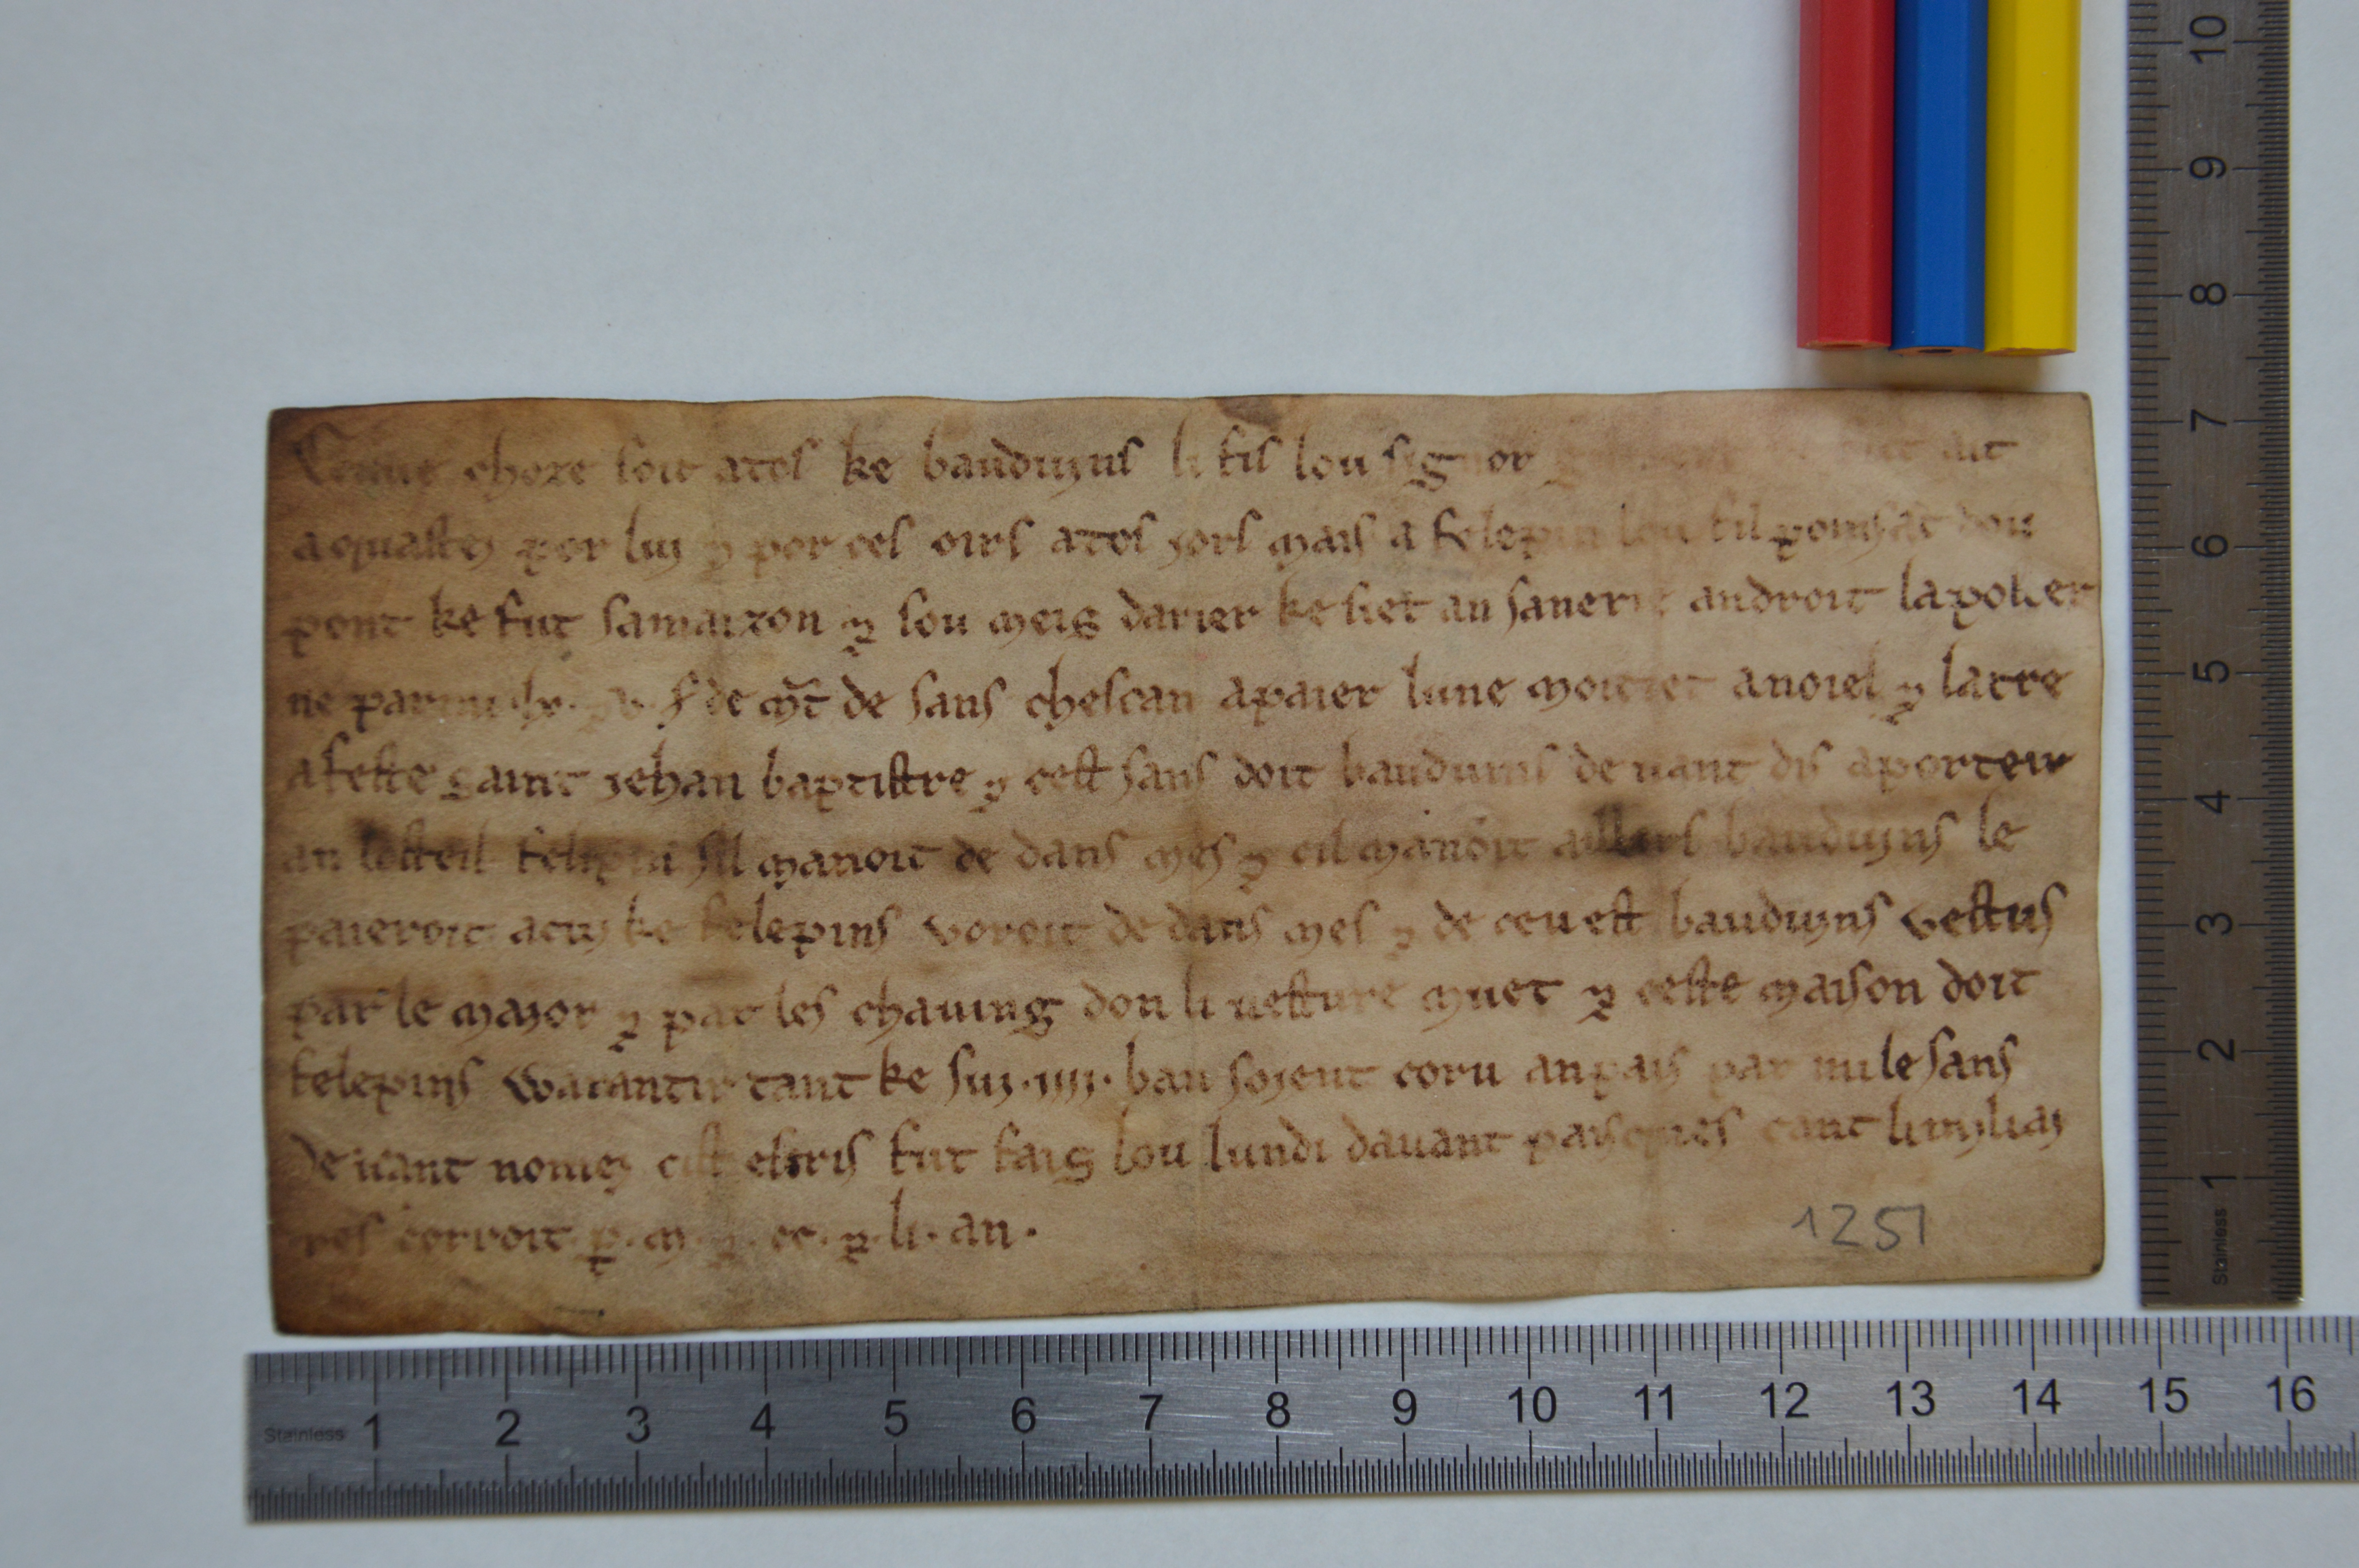 choze soit atos ke bauduyns li fis lou signor ait
aquastey por luy ⁊ por ces oirs atos jors mais a felepin lou fil poinsat dou
pont ke fut samaizon ⁊ lou meis darier ke siet an sanerie androit la poter
ne parmi de mt de sans chescan apaier lune moitiet anoiel ⁊ latre
a feste saint jehan baptistre ⁊ cest sans doit bauduins devant dis aporteir
an losteil felepin sil manoit de dans mes ⁊ cil manoit aillors bauduyns le
paieroit acuy ke felepins voroit de dans mes ⁊ de ceu est bauduyns vestus
par le major ⁊ par les chaving don li vesture muet ⁊ ceste maison doit
felepins warantir tant ke suy .iiij. ban soient coru an pais par mi le sans
devant nomey cist escris fut fais lou lundi davant paisques cant li myliay
res corroit p. m. ⁊ .cc. ⁊ .li. an.
1251
10
9
8
7
6
5
4
3
2
1
Stainless
Stainless 1 2 3 4 5 6 7 8 9 10 11 12 13 14 15 16